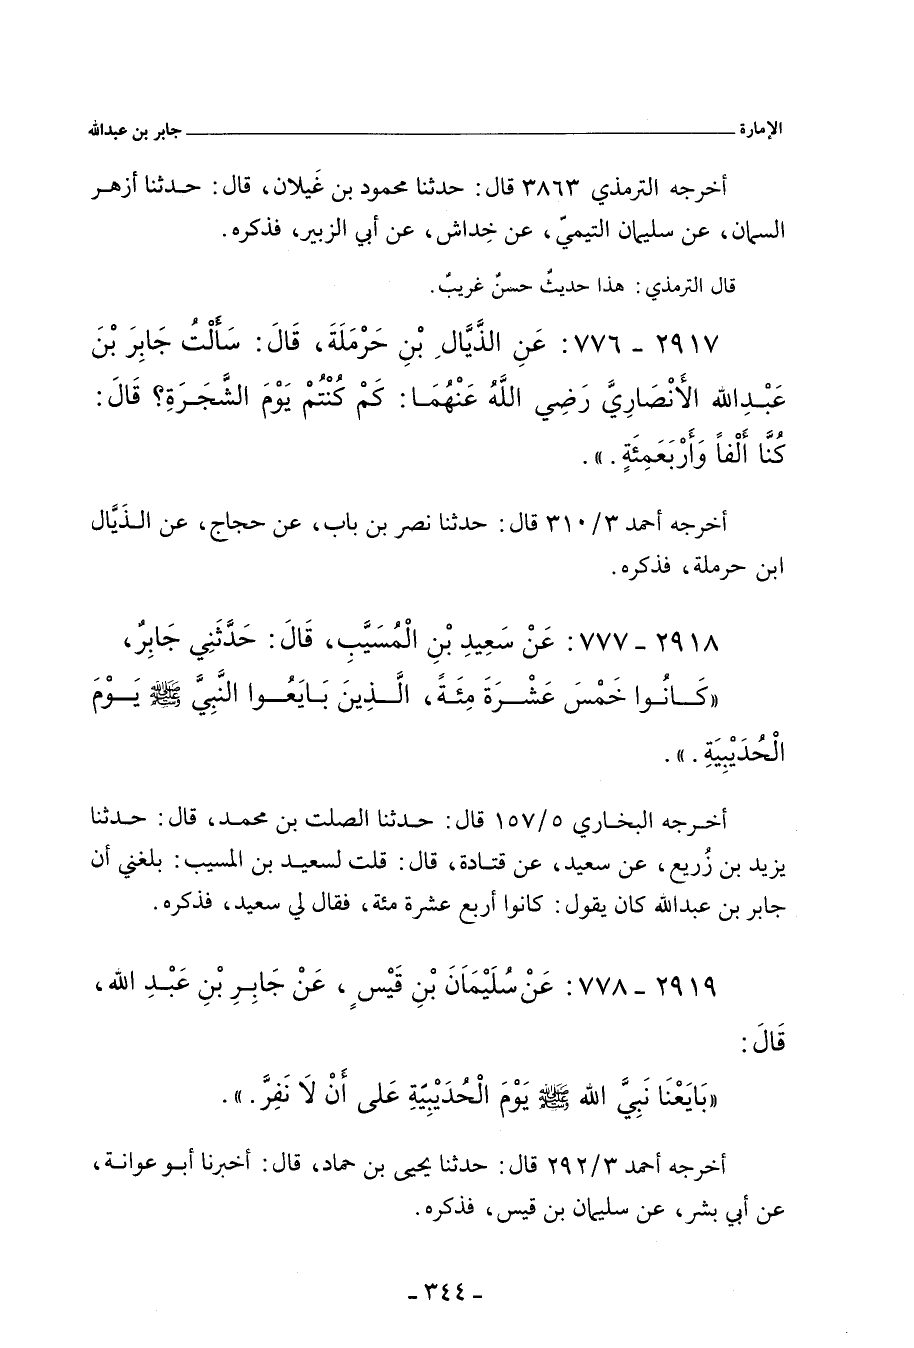 الإمارة ــــــــــــــــ جابر بن عبدالله
أخرجه الترمذي ٣٨٦٣ قال: حدثنا محمود بن غَيلان، قال: حدثنا أزهر
السمان، عن سليمان التيميّ، عن خِداش، عن أبي الزبير، فذكره.
قال الترمذي: هذا حديثٌ حسنٌ غريبٌ.
٢٩١٧ ـ ٧٧٦: عَنِ الذَّيَّالِ بْنِ حَرْمَلَةَ، قَالَ: سَأَلْتُ جَابِرَ بْنَ
عَبْدِالله الأَنْصَارِيَّ رَضِي اللَّهُ عَنْهُمَا: كَمْ كُنْتُمْ يَوْمَ الشَّجَرَةِ؟ قَالَ:
كُنَّا أَلْفاً وَأَرْبَعَمِئَةٍ.».
أخرجه أحمد ٣١٠/٣ قال: حدثنا نصر بن باب، عن حجاج، عن الذَيَّال
ابن حرملة، فذكره.
٢٩١٨ ـ ٧٧٧: عَنْ سَعِيدِ بْنِ الْمُسَيَّبِ، قَالَ: حَدَّثَنِي جَابِرٌ،
«كَانُوا خَمْسَ عَشْرَةَ مِئَةً، الَّذِينَ بَايَعُوا النَّبِيَّ ﷺ يَوْمَ
الْحُدَيْبِيَةِ.».
أخرجه البخاري ١٥٧/٥ قال: حدثنا الصلت بن محمد، قال: حدثنا
يزيد بن زُريع، عن سعيد، عن قتادة، قال: قلت لسعيد بن المسيب: بلغني أن
جابر بن عبدالله كان يقول: كانوا أربع عشرة مئة، فقال لي سعيد، فذكره.
٢٩١٩ ـ ٧٧٨: عَنْ سُلَيْمَانَ بْنِ قَيْسٍ، عَنْ جَابِرِ بْنِ عَبْدِ الله،
قَالَ:
«بَايَعْنَا نَبِيَّ الله ﷺ يَوْمَ الْحُدَيْبِيَّةِ عَلى أَنْ لَا نَفِرَّ.».
أخرجه أحمد ٢٩٢/٣ قال: حدثنا يحيى بن حماد، قال: أخبرنا أبو عوانة،
عن أبي بشر، عن سليمان بن قيس، فذكره.
ـ ٣٤٤ ـ